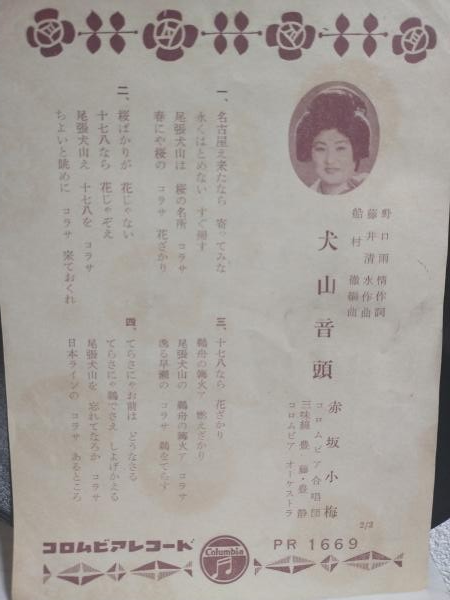 野口雨情作詞
藤井清水作曲
船村徹編曲
犬山音頭
赤坂小梅
コロムビア合唱団
三味線 豊藤・豊静
コロムビア オーケストラ
一、名古屋え来たなら 寄ってみな
永くはとめない すぐ帰す
尾張犬山は 桜の名所 コラサ
春にや桜の コラサ 花ざかり
二、桜ばかりが 花じゃない
十七八なら 花じゃぞえ
尾張犬山え 十七八を コラサ
ちょいと眺めに コラサ 来ておくれ
三、十七八なら 花ざかり
鵜舟の篝火ァ 燃えざかり
尾張犬山の 鵜舟の篝火ァ コラサ
逸る早瀬の コラサ 鵜をてらす
四、てらさにゃお前は どうなさる
てらさにゃ鵜でさえ しよげかえる
尾張犬山を 忘れてなろか コラサ
日本ラインの コラサ あるところ
2/2
コロムビアレコード
Columbia
PR 1669